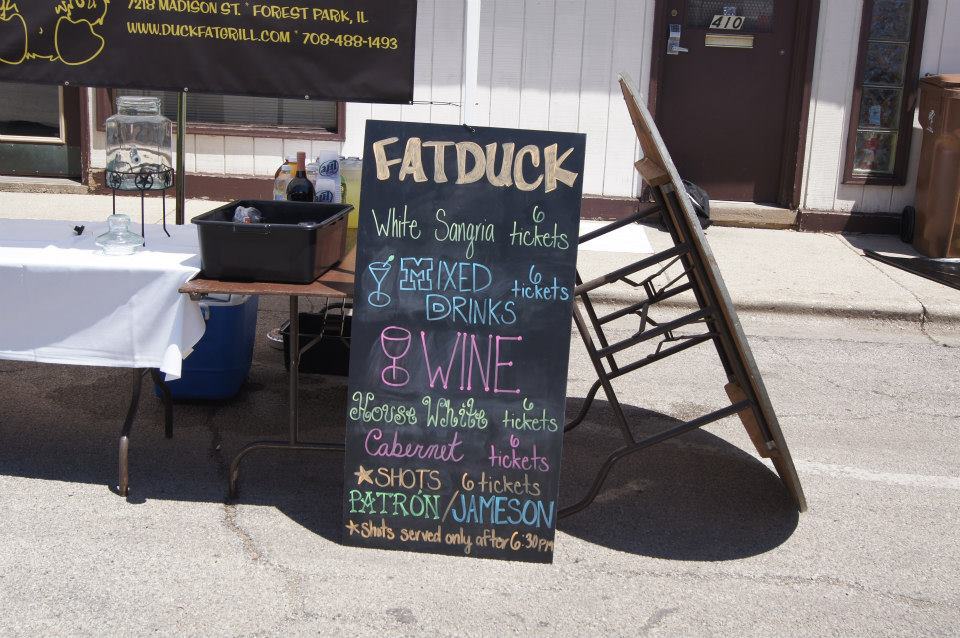 7218 MADISON ST. * FOREST PARK, IL
WWW.DUCKFATGRILL.COM * 708-488-1493
410
FATDUCK
White Sangria 6 tickets
MIXED DRINKS 6 tickets
WINE
House White 6 tickets
Cabernet 6 tickets
*SHOTS 6 tickets
PATRÓN/JAMESON
*shots served only after 6:30pm